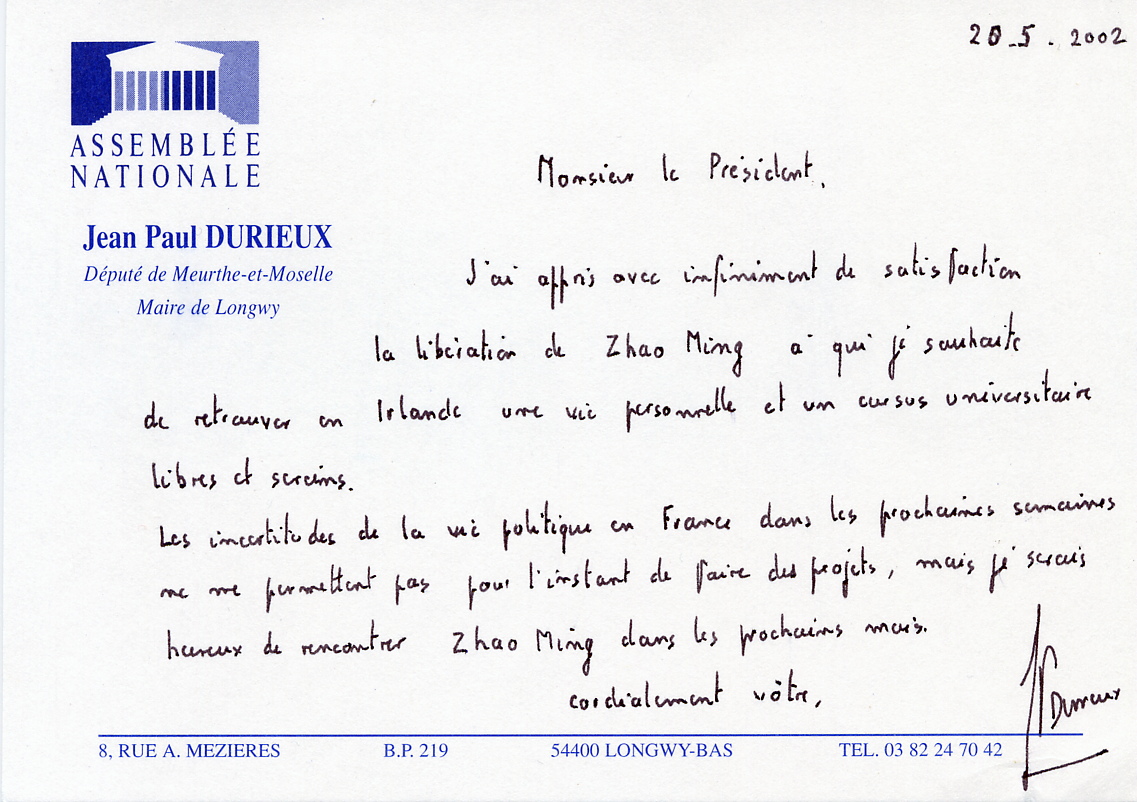 20.5.2002
ASSEMBLÉE
NATIONALE
Jean Paul DURIEUX
Député de Meurthe-et-Moselle
Maire de Longwy
Monsieur le Président,
J'ai appris avec infiniment de satisfaction
la libération de Zhao Ming à qui je souhaite
de retrouver en Irlande une vie personnelle et un cursus universitaire
libres et sereins.
Les incertitudes de la vie politique en France dans les prochaines semaines
ne me permettent pas pour l'instant de faire des projets, mais je serais
heureux de rencontrer Zhao Ming dans les prochains mois.
cordialement vôtre,
JP Durieux
8, RUE A. MEZIERES B.P. 219 54400 LONGWY-BAS TEL. 03 82 24 70 42